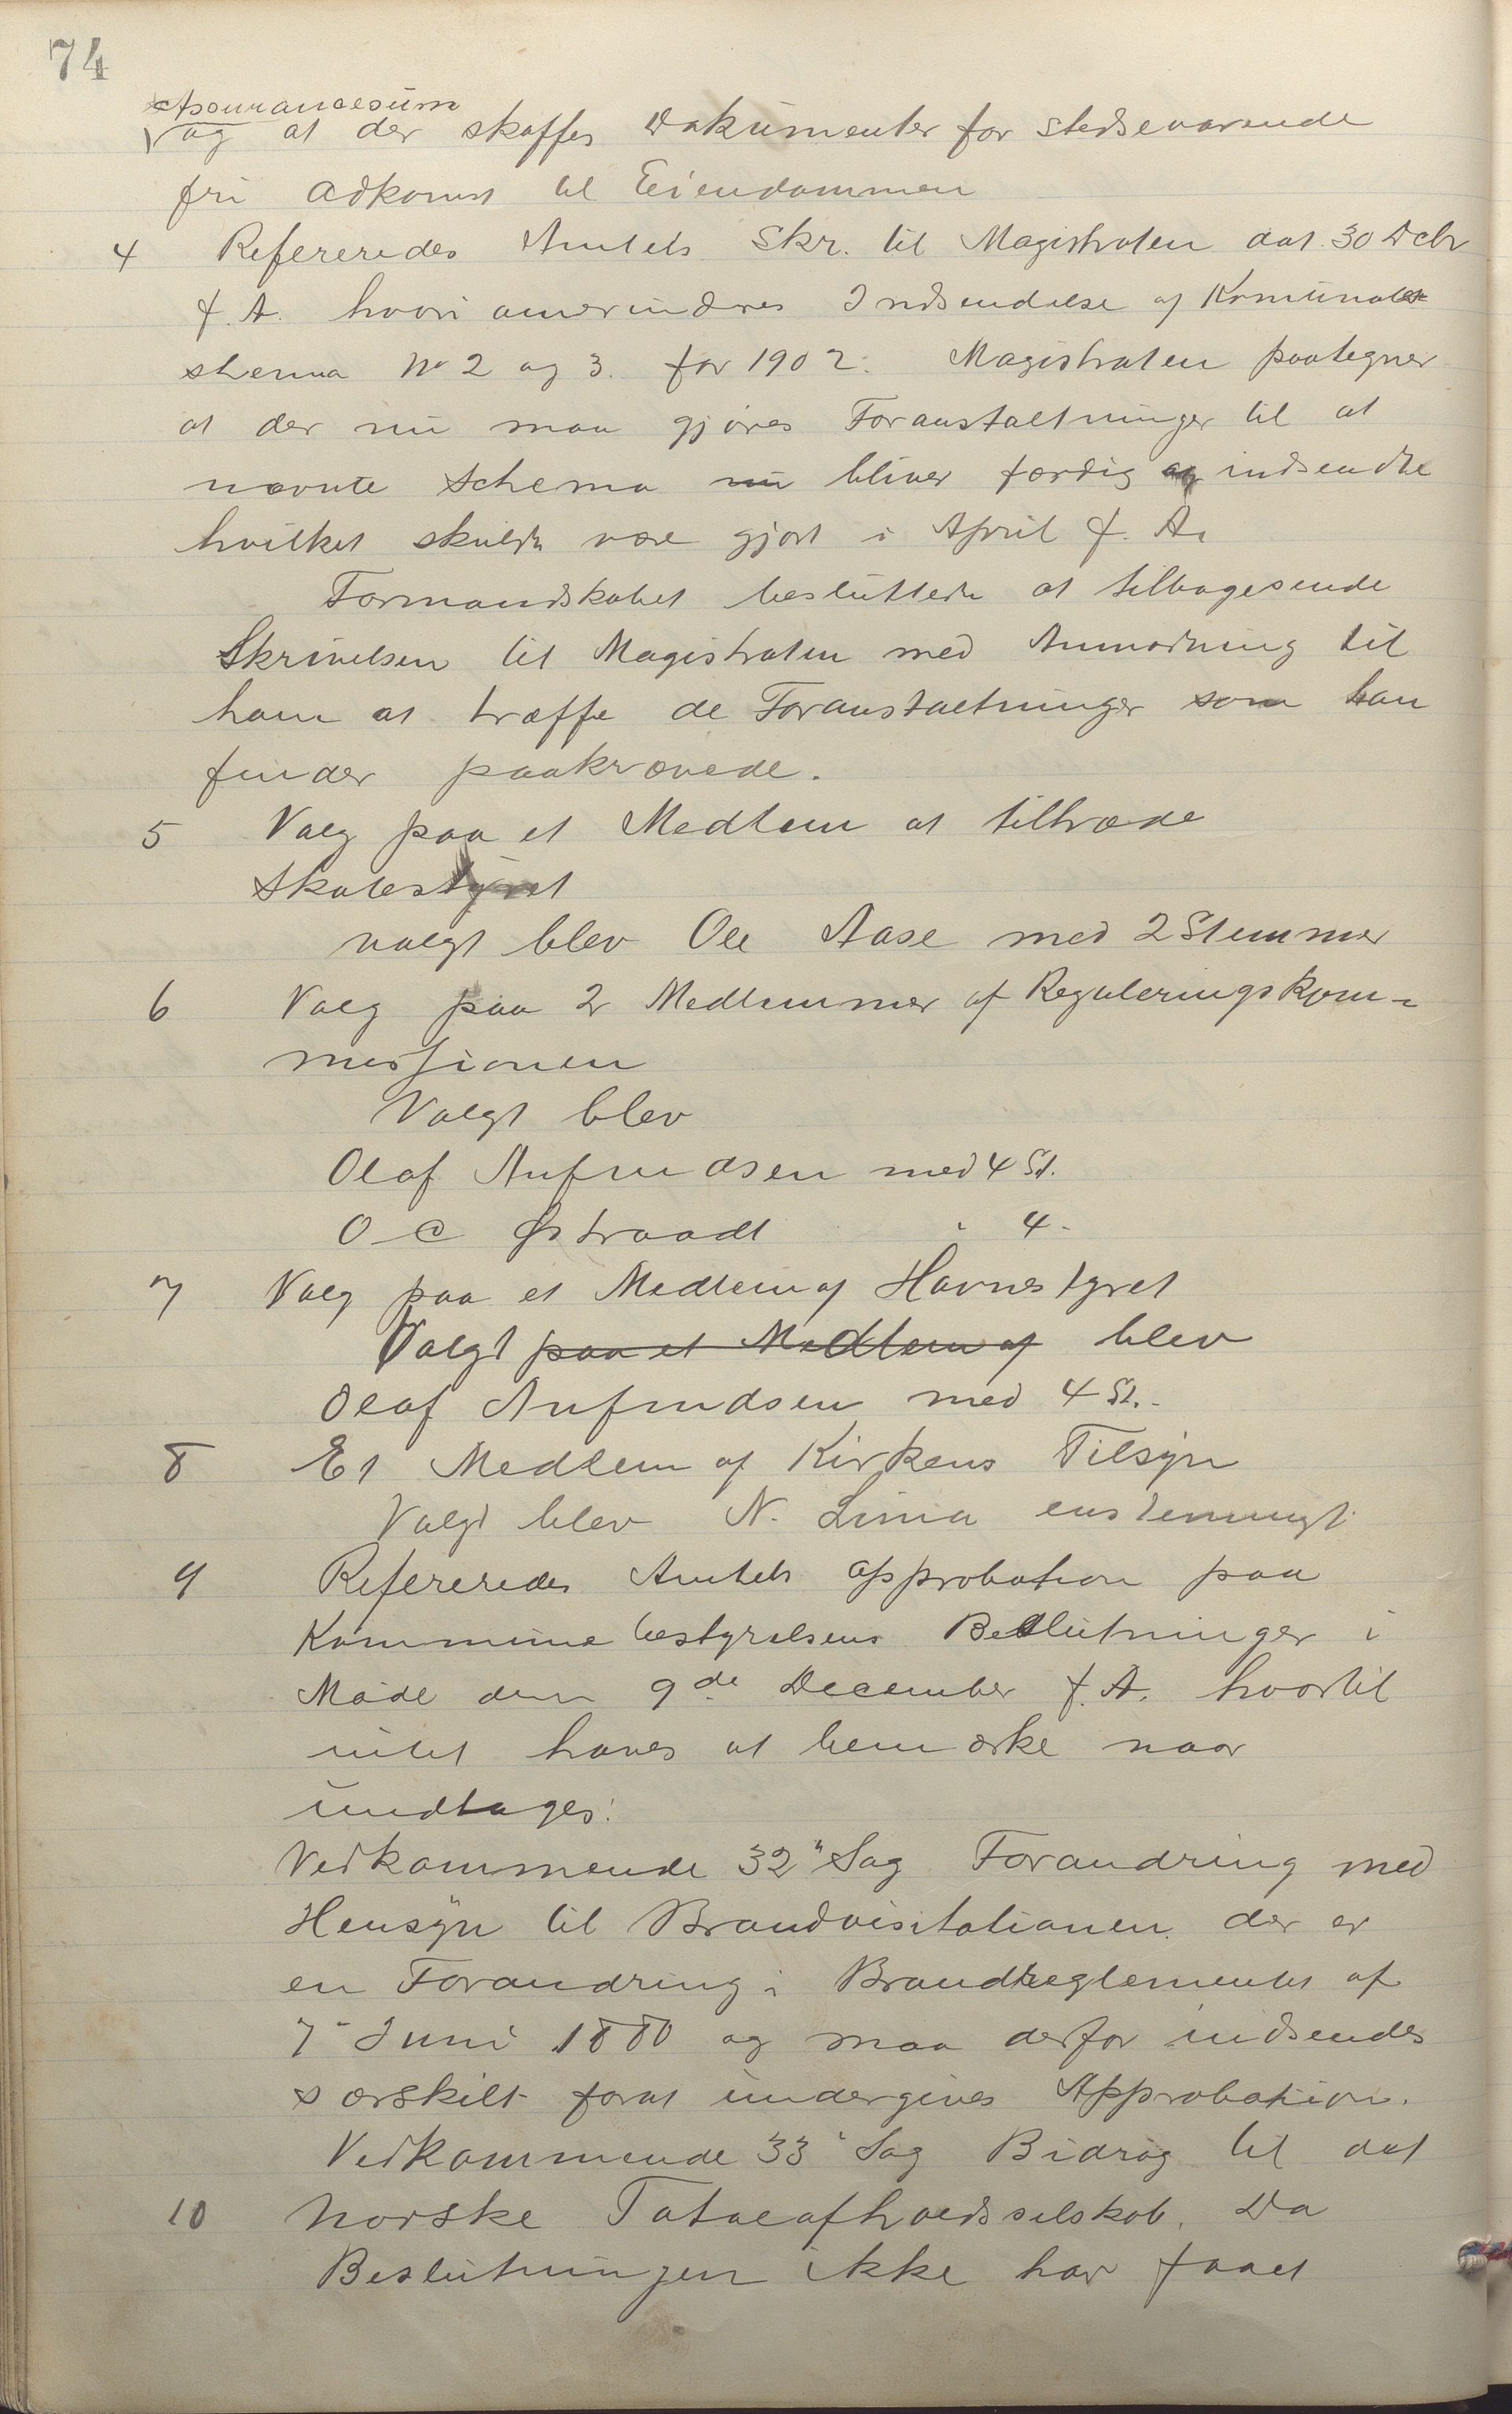 74
Assurancesum
og at der skaffes Dokumenter for stedsevarende
fri Adkomst til Eiendommen
4 Refereredes Amtets Skr. til Magistraten dat. 30 Dcbr
f. A. hvori amerindres Indsendelse af Komunale
shema No 2 og 3. for 1902. Magistraten paategner
at der nu maa gjøres Foranstaltninger til at
nævnte Schema nu bliver færdig og indsendte
hvilket skulde være gjort i April f. A.
Formandskabet besluttede at tilbagesende
Skrivelsen til Magistraten med Anmodning til
ham at træffe de Foranstaltninger som han
finder paakrævede.
5 Valg paa et Medlem at tiltræde
Skolestyret
valgt blev Ole Aase med 2 Stemmer
6 Valg paa 2 Medlemmer af Reguleringskom-
missionen
Valgt blev
Olaf Anfindsen med 4 St.
O C Østraadt " 4 -
7 Valg paa et Medlem af Havnestyret
Valgt paa et Medlem af blev
Olaf Anfindsen med 4 St.
8 Et Medlem af Kirkens Tilsyn
Valgt blev N. Lima enstemmigt
9 Refereredes Amtets approbation paa
Kommunebestyrelsens Beslutninger i
Møde den 9de December f. A. hvortil
intet haves at bemærke naar
undtages:
Vedkommende 32" Sag Forandring med
Hensyn til Brandvisitationen der er
en Forandring i Brandreglementet af
7" Juni 1880 og maa derfor indsendes
særskilt forat undergives Approbation.
Vedkommende 33" Sag Bidrag til det
10 norske Totalafholdsselskab. Da
Beslutningen ikke har faaet